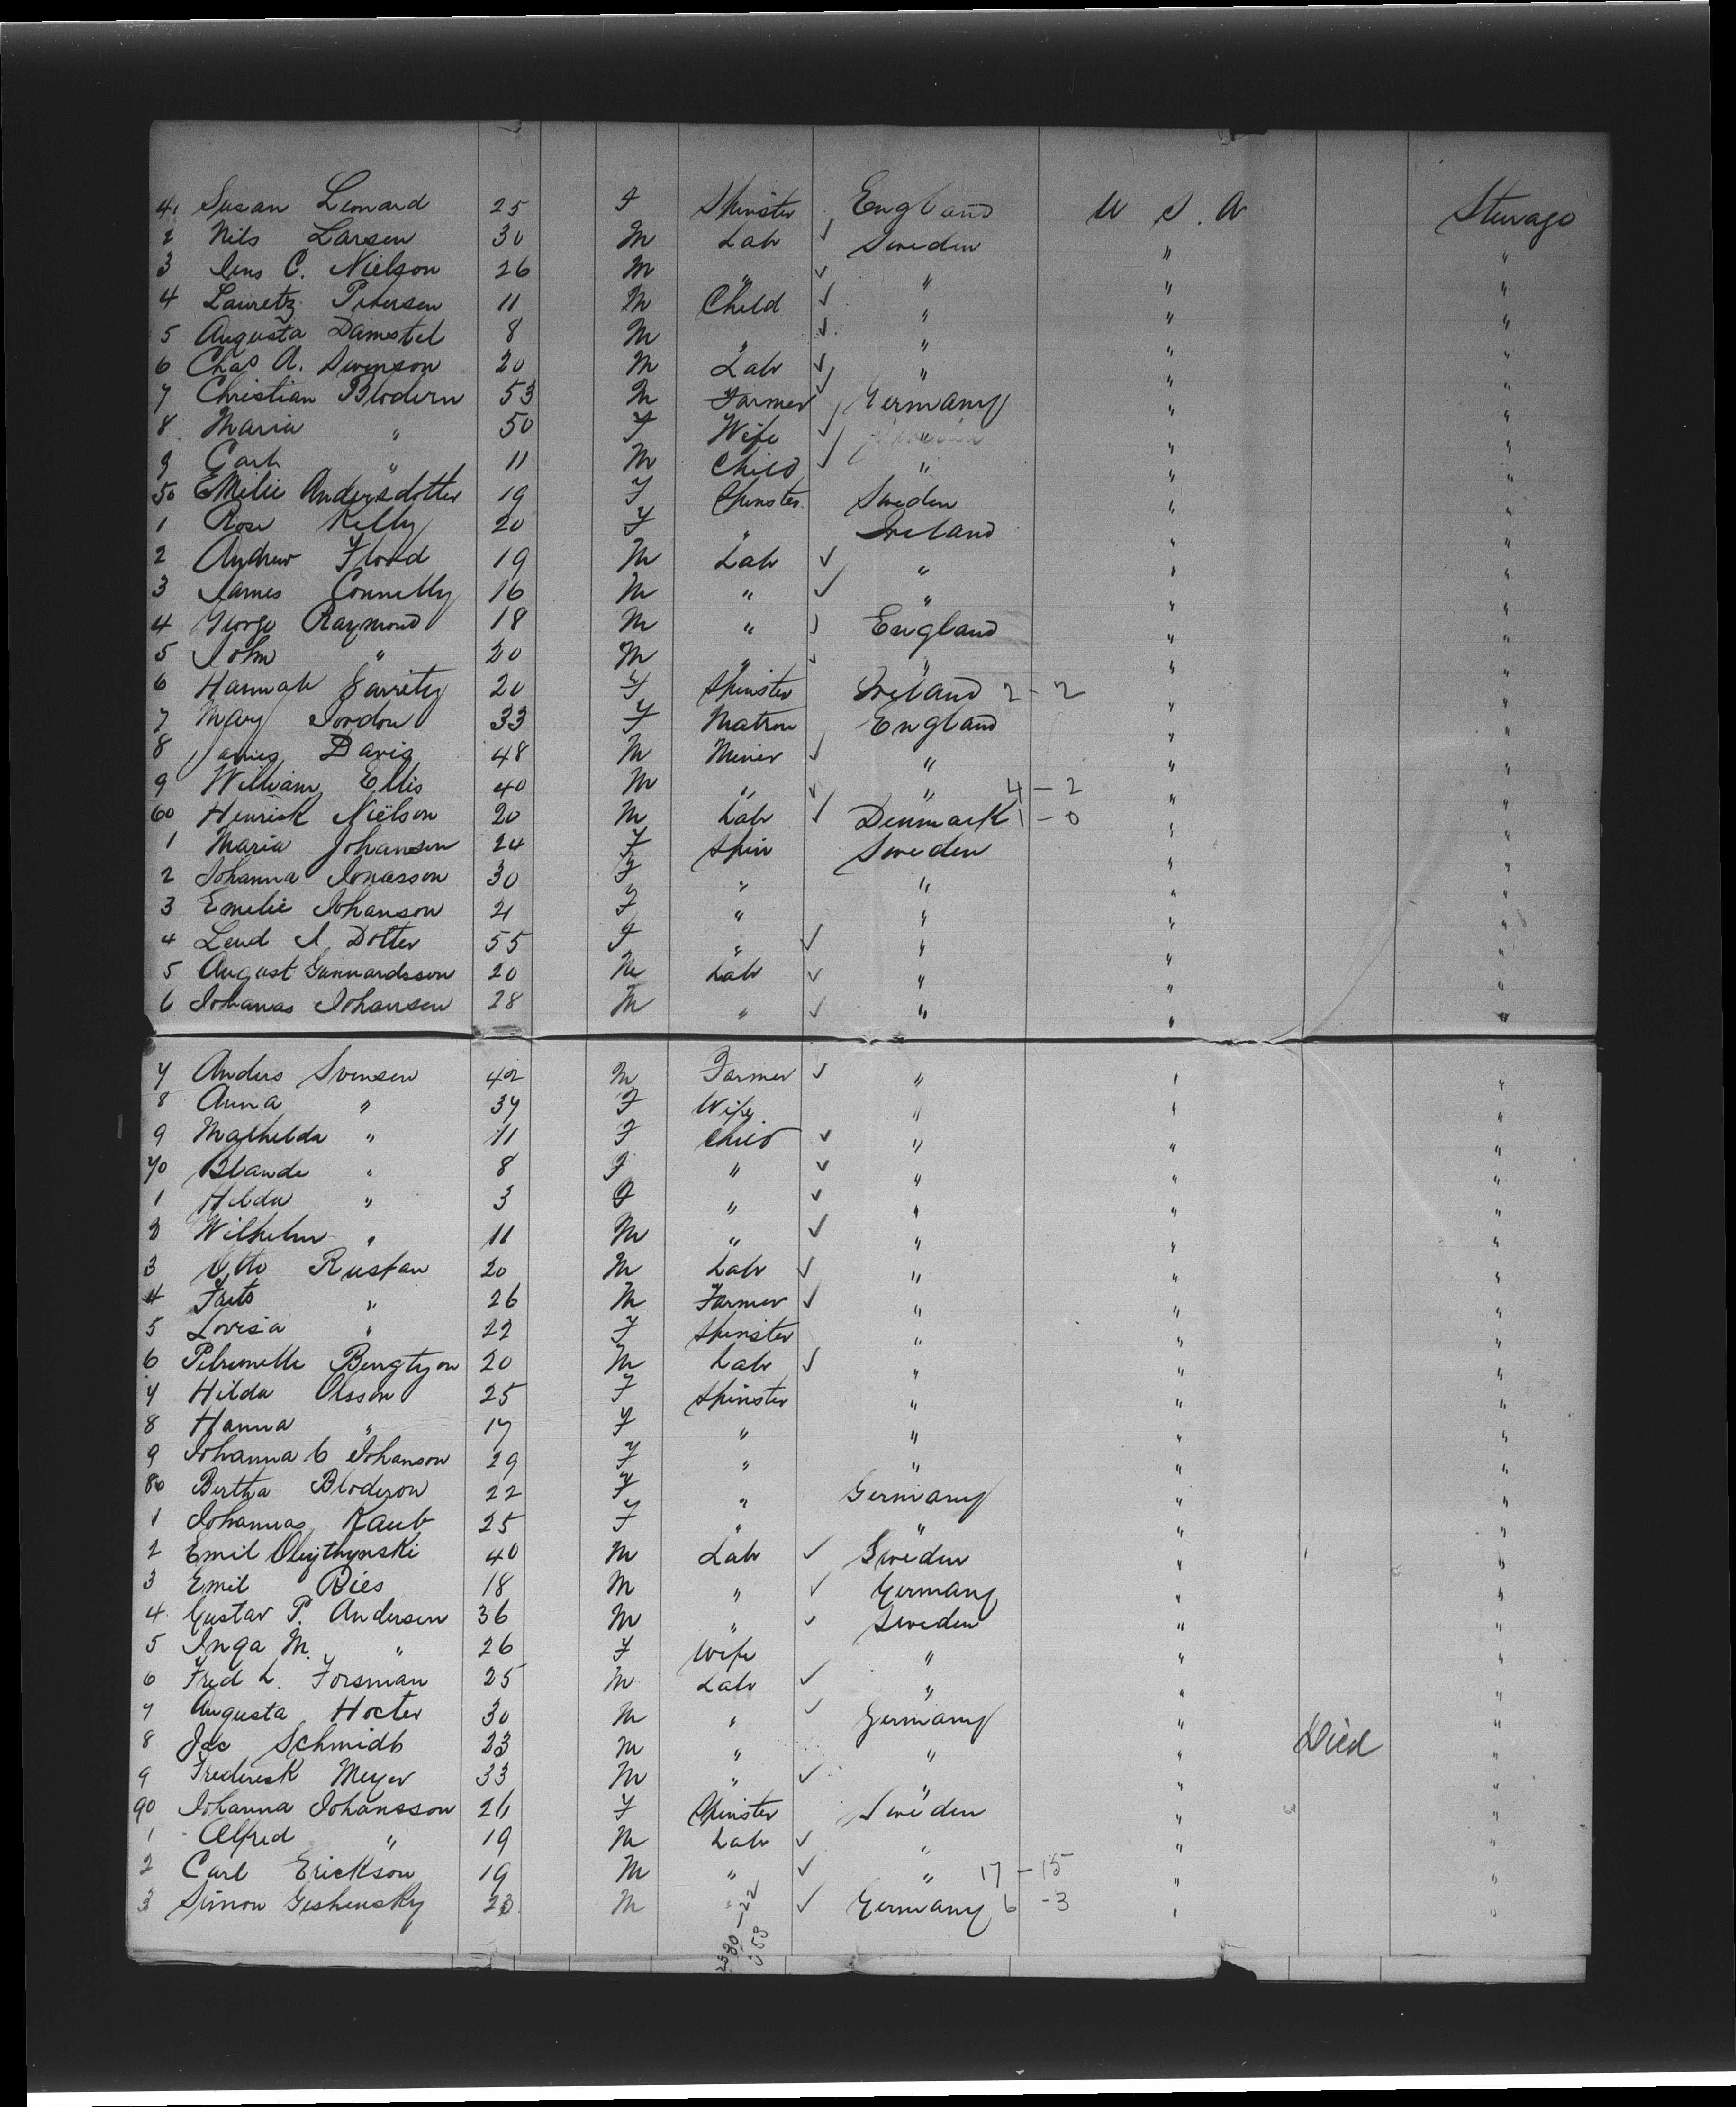 41 Susan Leonard 25 F Spinster England U S. A Sterage
2 Nils Larsen 30 M Labr Sweden " "
3 Jens C. Nielson 26 M " " " "
4 Lauretz Petersen 11 M Child " " "
5 Augusta Damstel 8 M " " " "
6 Chas A. Swenson 20 M Labr " " "
7 Christian Blodern 53 M Farmer Germany " "
8 Maria " 50 F Wife " " "
9 Carl " 11 M Child " " "
50 Emilie Andersdotter 19 F Spinster Sweden " "
1 Rose Kelly 20 F " Ireland " "
2 Andrew Flood 19 M Labr " " "
3 James Connelly 16 M " " " "
4 George Raymond 18 M " England " "
5 John " 20 M " " " "
6 Hannah Garrity 20 F Spinster Ireland 2-2 " "
7 Mary Jordon 33 F Matron England " "
8 James Davis 48 M Miner " " "
9 William Ellis 40 M " " 4-2 " "
60 Henrick Nielson 20 M Labr Denmark 1-0 " "
1 Maria Johansen 24 F Spin Sweden " "
2 Johanna Jonasson 30 F " " " "
3 Emelie Johanson 21 F " " " "
4 Lend A Dotter 55 F " " " "
5 August Gunnardsson 20 M Labr " " "
6 Johanas Johansen 28 M " " " "
7 Anders Svensen 42 M Farmer " " "
8 Anna " 37 F Wife " " "
9 Mathelda " 11 F Child " " "
70 Blande " 8 F " " " "
1 Hilda " 3 F " " " "
2 Wilhelm " 11 M " " " "
3 Otto Rustan 20 M Labr " " "
4 Frits " 26 M Farmer " " "
5 Lovisa " 22 F Spinster " " "
6 Petrunelle Bengtson 20 M Labr " " "
7 Hilda Olsson 25 F Spinster " " "
8 Hanna " 17 F " " " "
9 Johanna C Johanson 29 F " " " "
80 Bertha Bloderon 22 F " Germany " "
1 Johannas Raub 25 F " " " "
2 Emil 40 M Labr Sweden " "
3 Emil Ries 18 M " Germany " "
4 Gustav P. Andersen 36 M " Sweden " "
5 Inga M. " 26 F Wife " " "
6 Fred L. Forsman 25 M Labr " " "
7 Augusta Hocter 30 M " Germany " "
8 Jac Schmidt 23 M " " " Died "
9 Frederesk Meyer 33 M " " " "
90 Johanna Johansson 26 F Spinster Sweden " "
1 Alfred " 19 M Labr " " "
2 Carl Erickson 19 M " " 17-15 " "
3 Simon Geshensky 23 M " Germany 6-3 " "